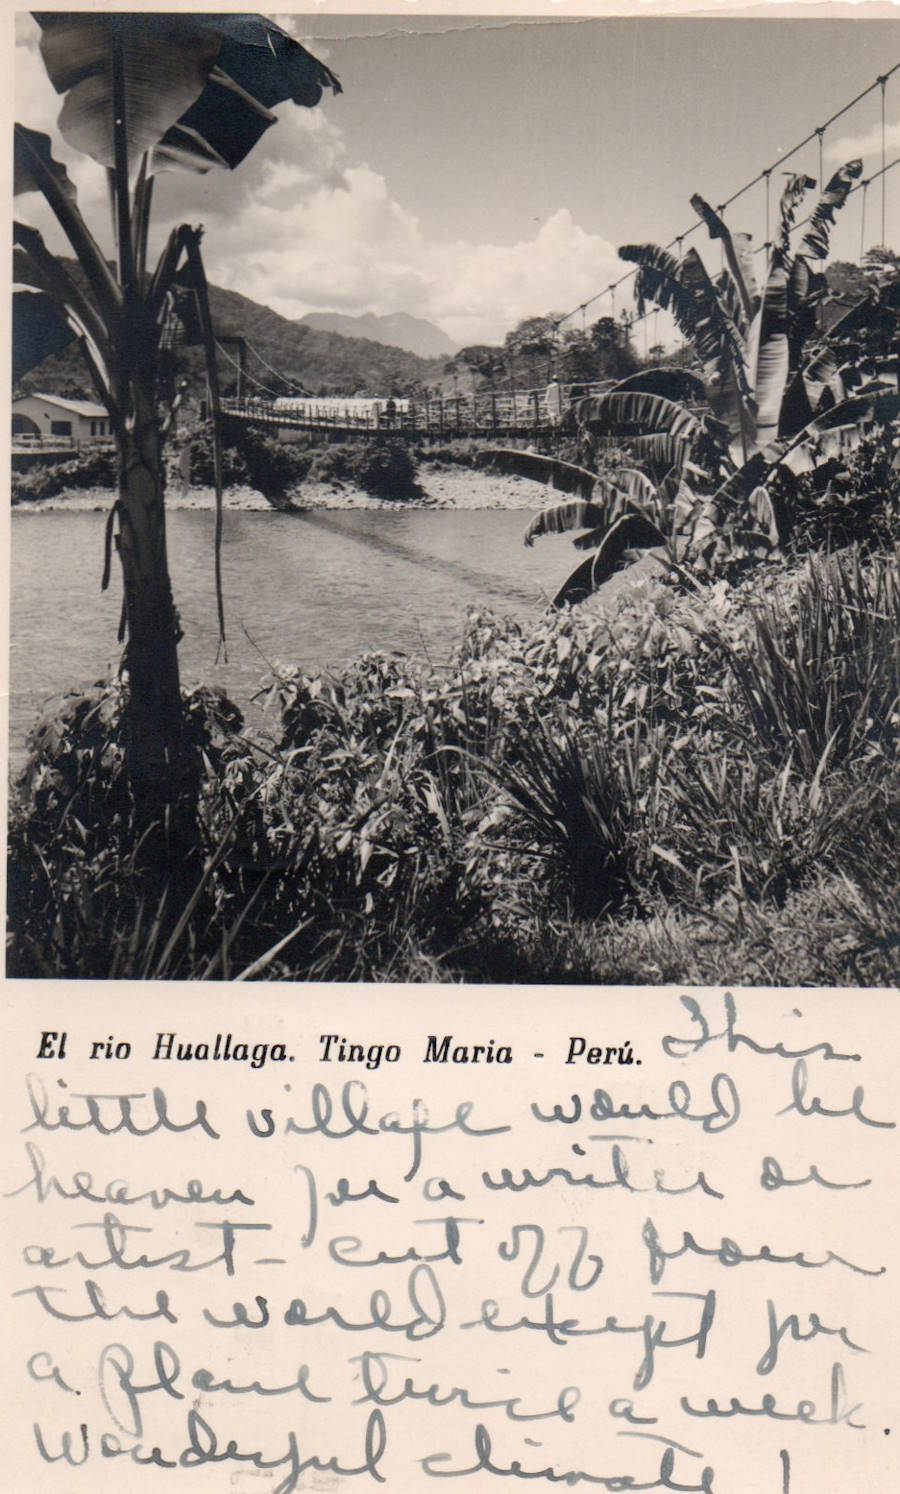 El rio Huallaga. Tingo Maria - Perú. This
little village would be
heaven for a writer or
artist - cut off from
the world except for
a plane twice a week.
Wonderful climate!